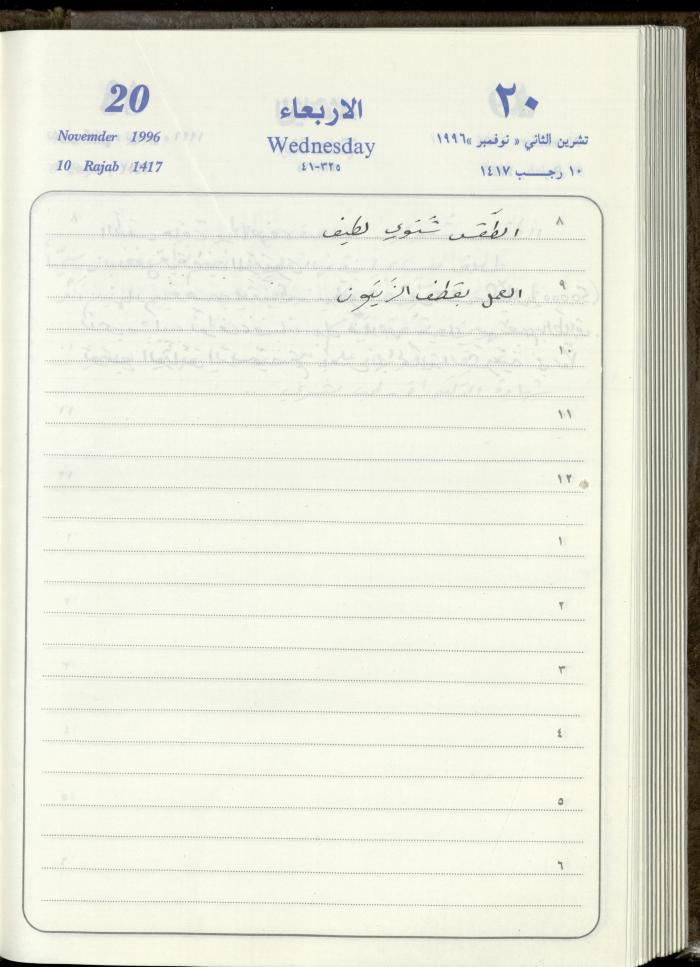 20
٢٠
الاربعاء
Novemder 1996
Wednesday
تشرين الثاني « نوفمبر »١٩٩٦
10 Rajab 1417
٤١-٣٢٥
١٠ رجب ١٤١٧
٨
الطقس شتوي لطيف
٩
العمل بقطف الزيتون
١٠
١١
١٢
١
٢
٣
٤
٥
٦